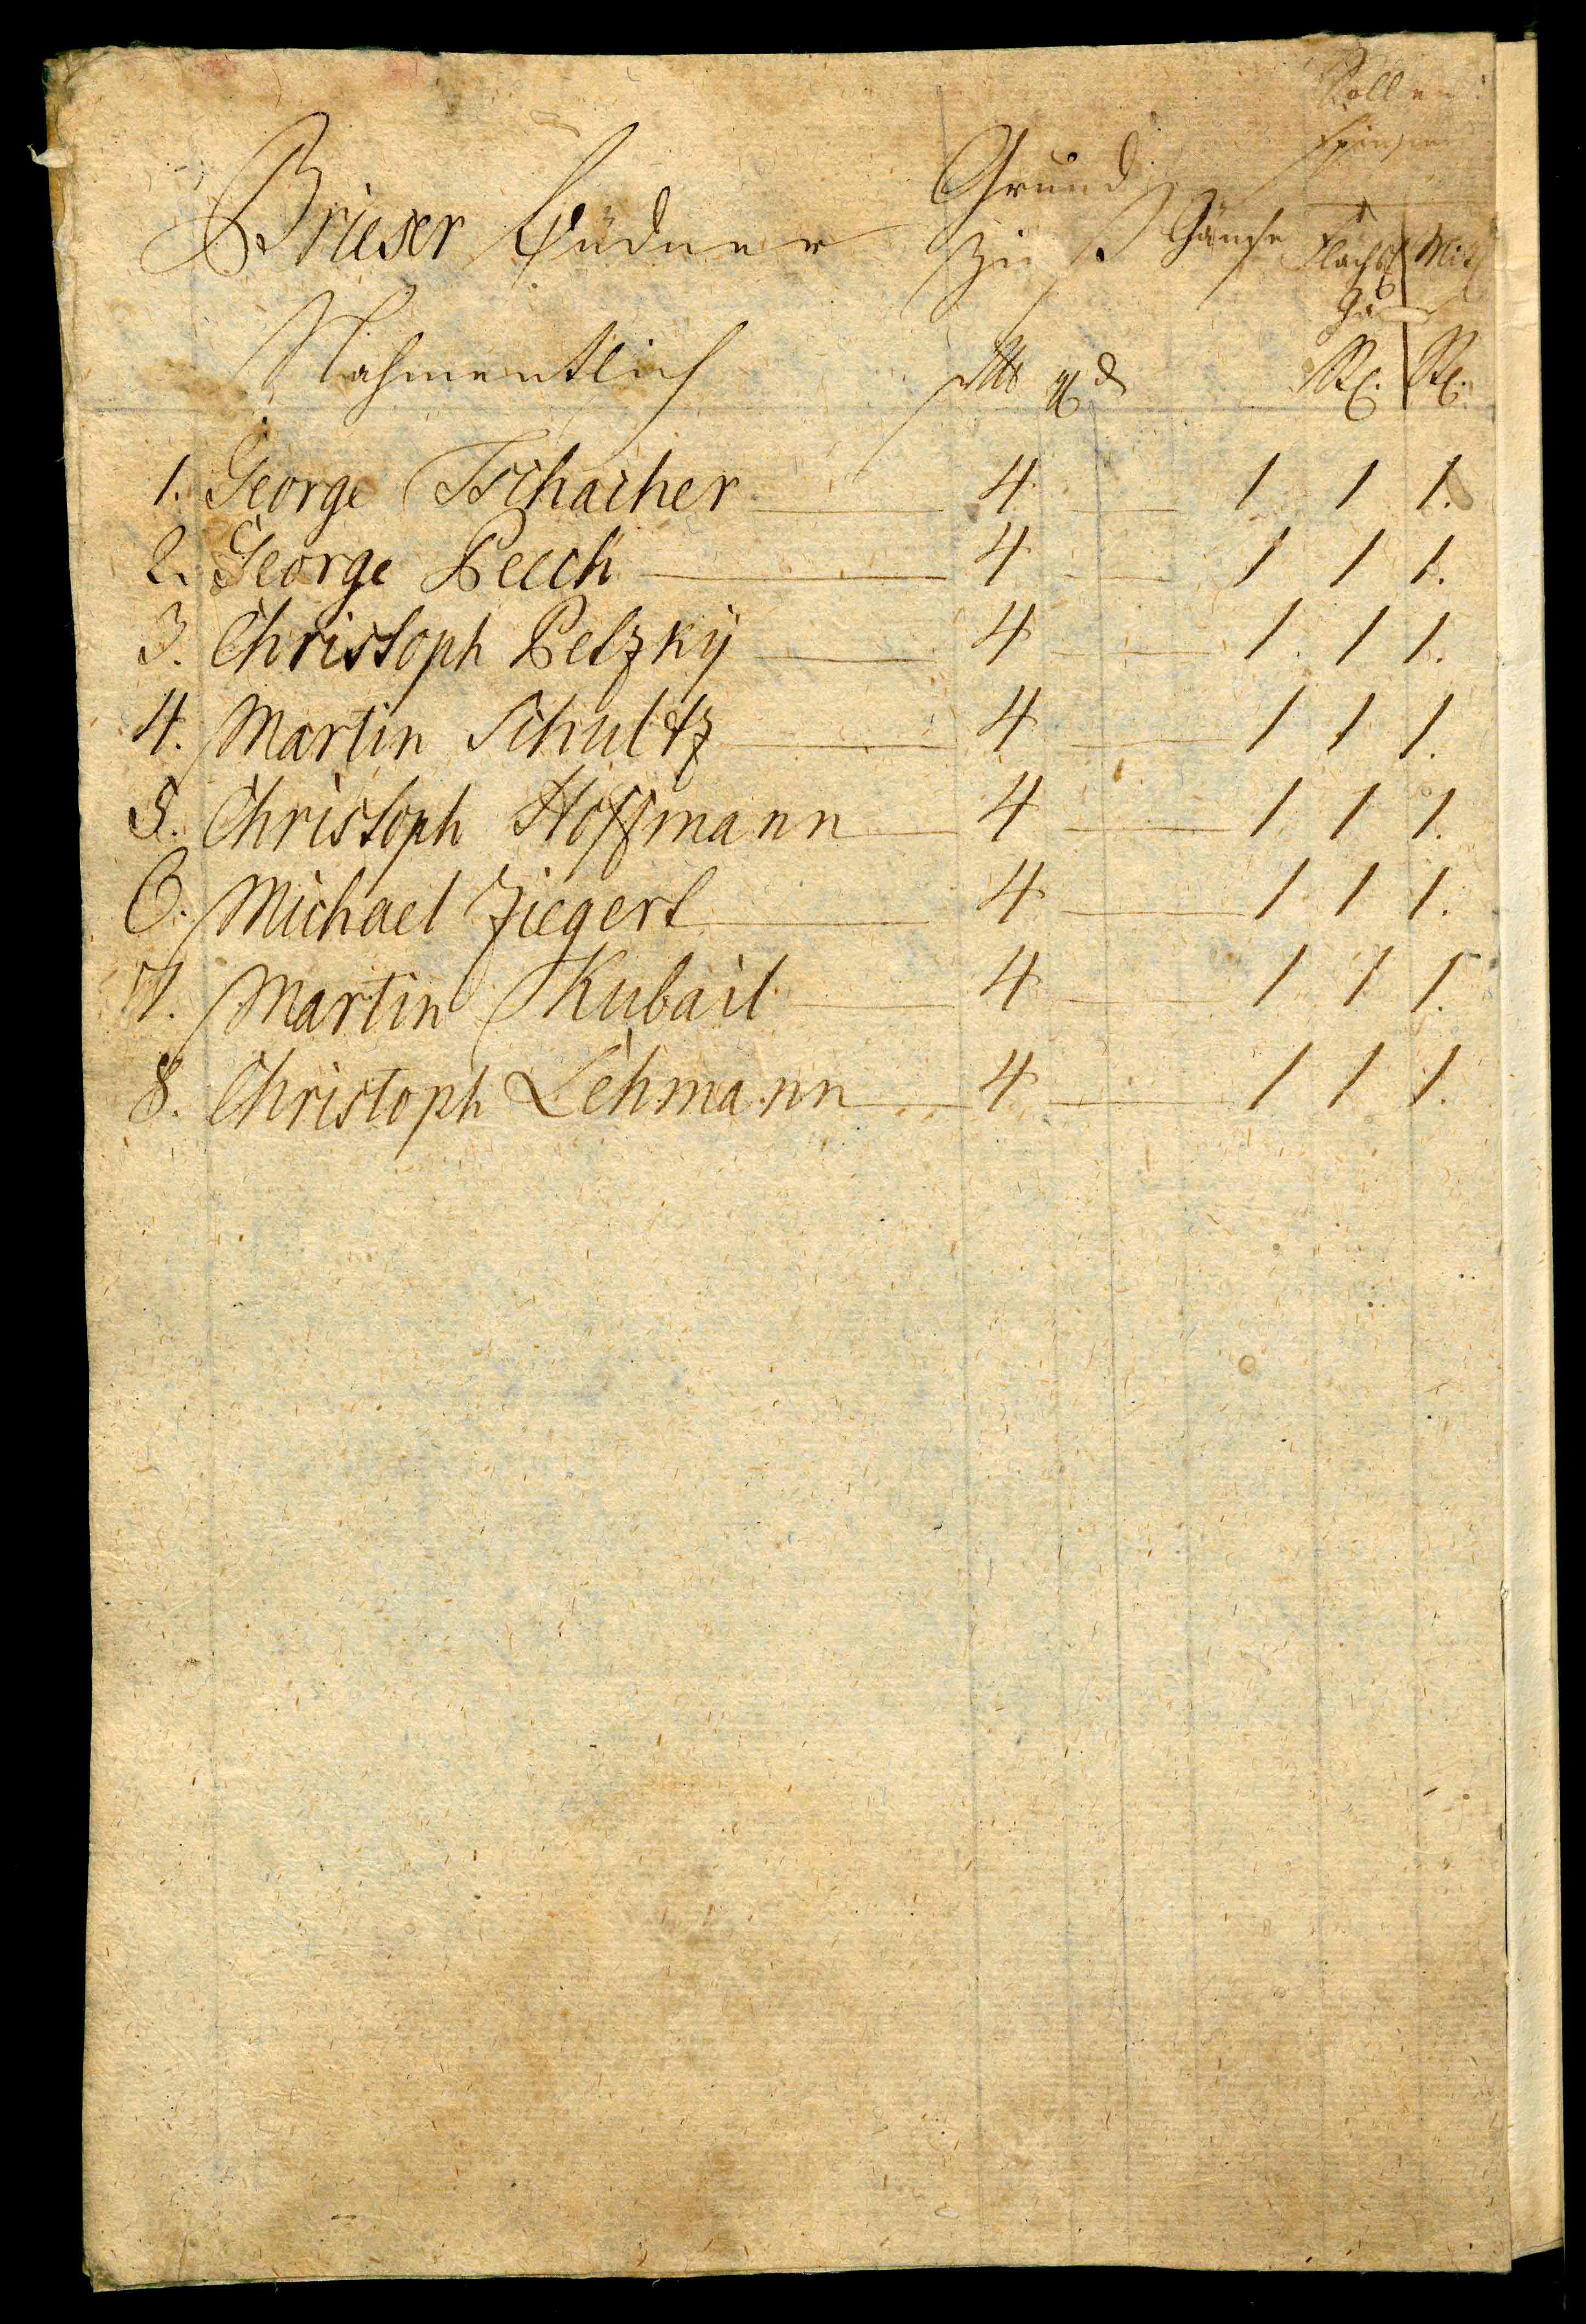 Sollen
spinnen
Grund
Brieser Büdner Zinß Gänse Flachß Mit
Nahmentlich rtl gl d Stk. Stk.
1. George Tschacher 4 1 1 1.
2. George Pecch 4 1 1 1.
3. Christoph Pelzkÿ 4 1 1 1.
4. Martin Schultz 4 1 1 1.
5. Christoph Hoffmann 4 1 1 1.
6. Michael Ziegert 4 1 1 1.
7. Martin Kubail 4 1 1 1.
8. Christoph Lehmann 4 1 1 1.